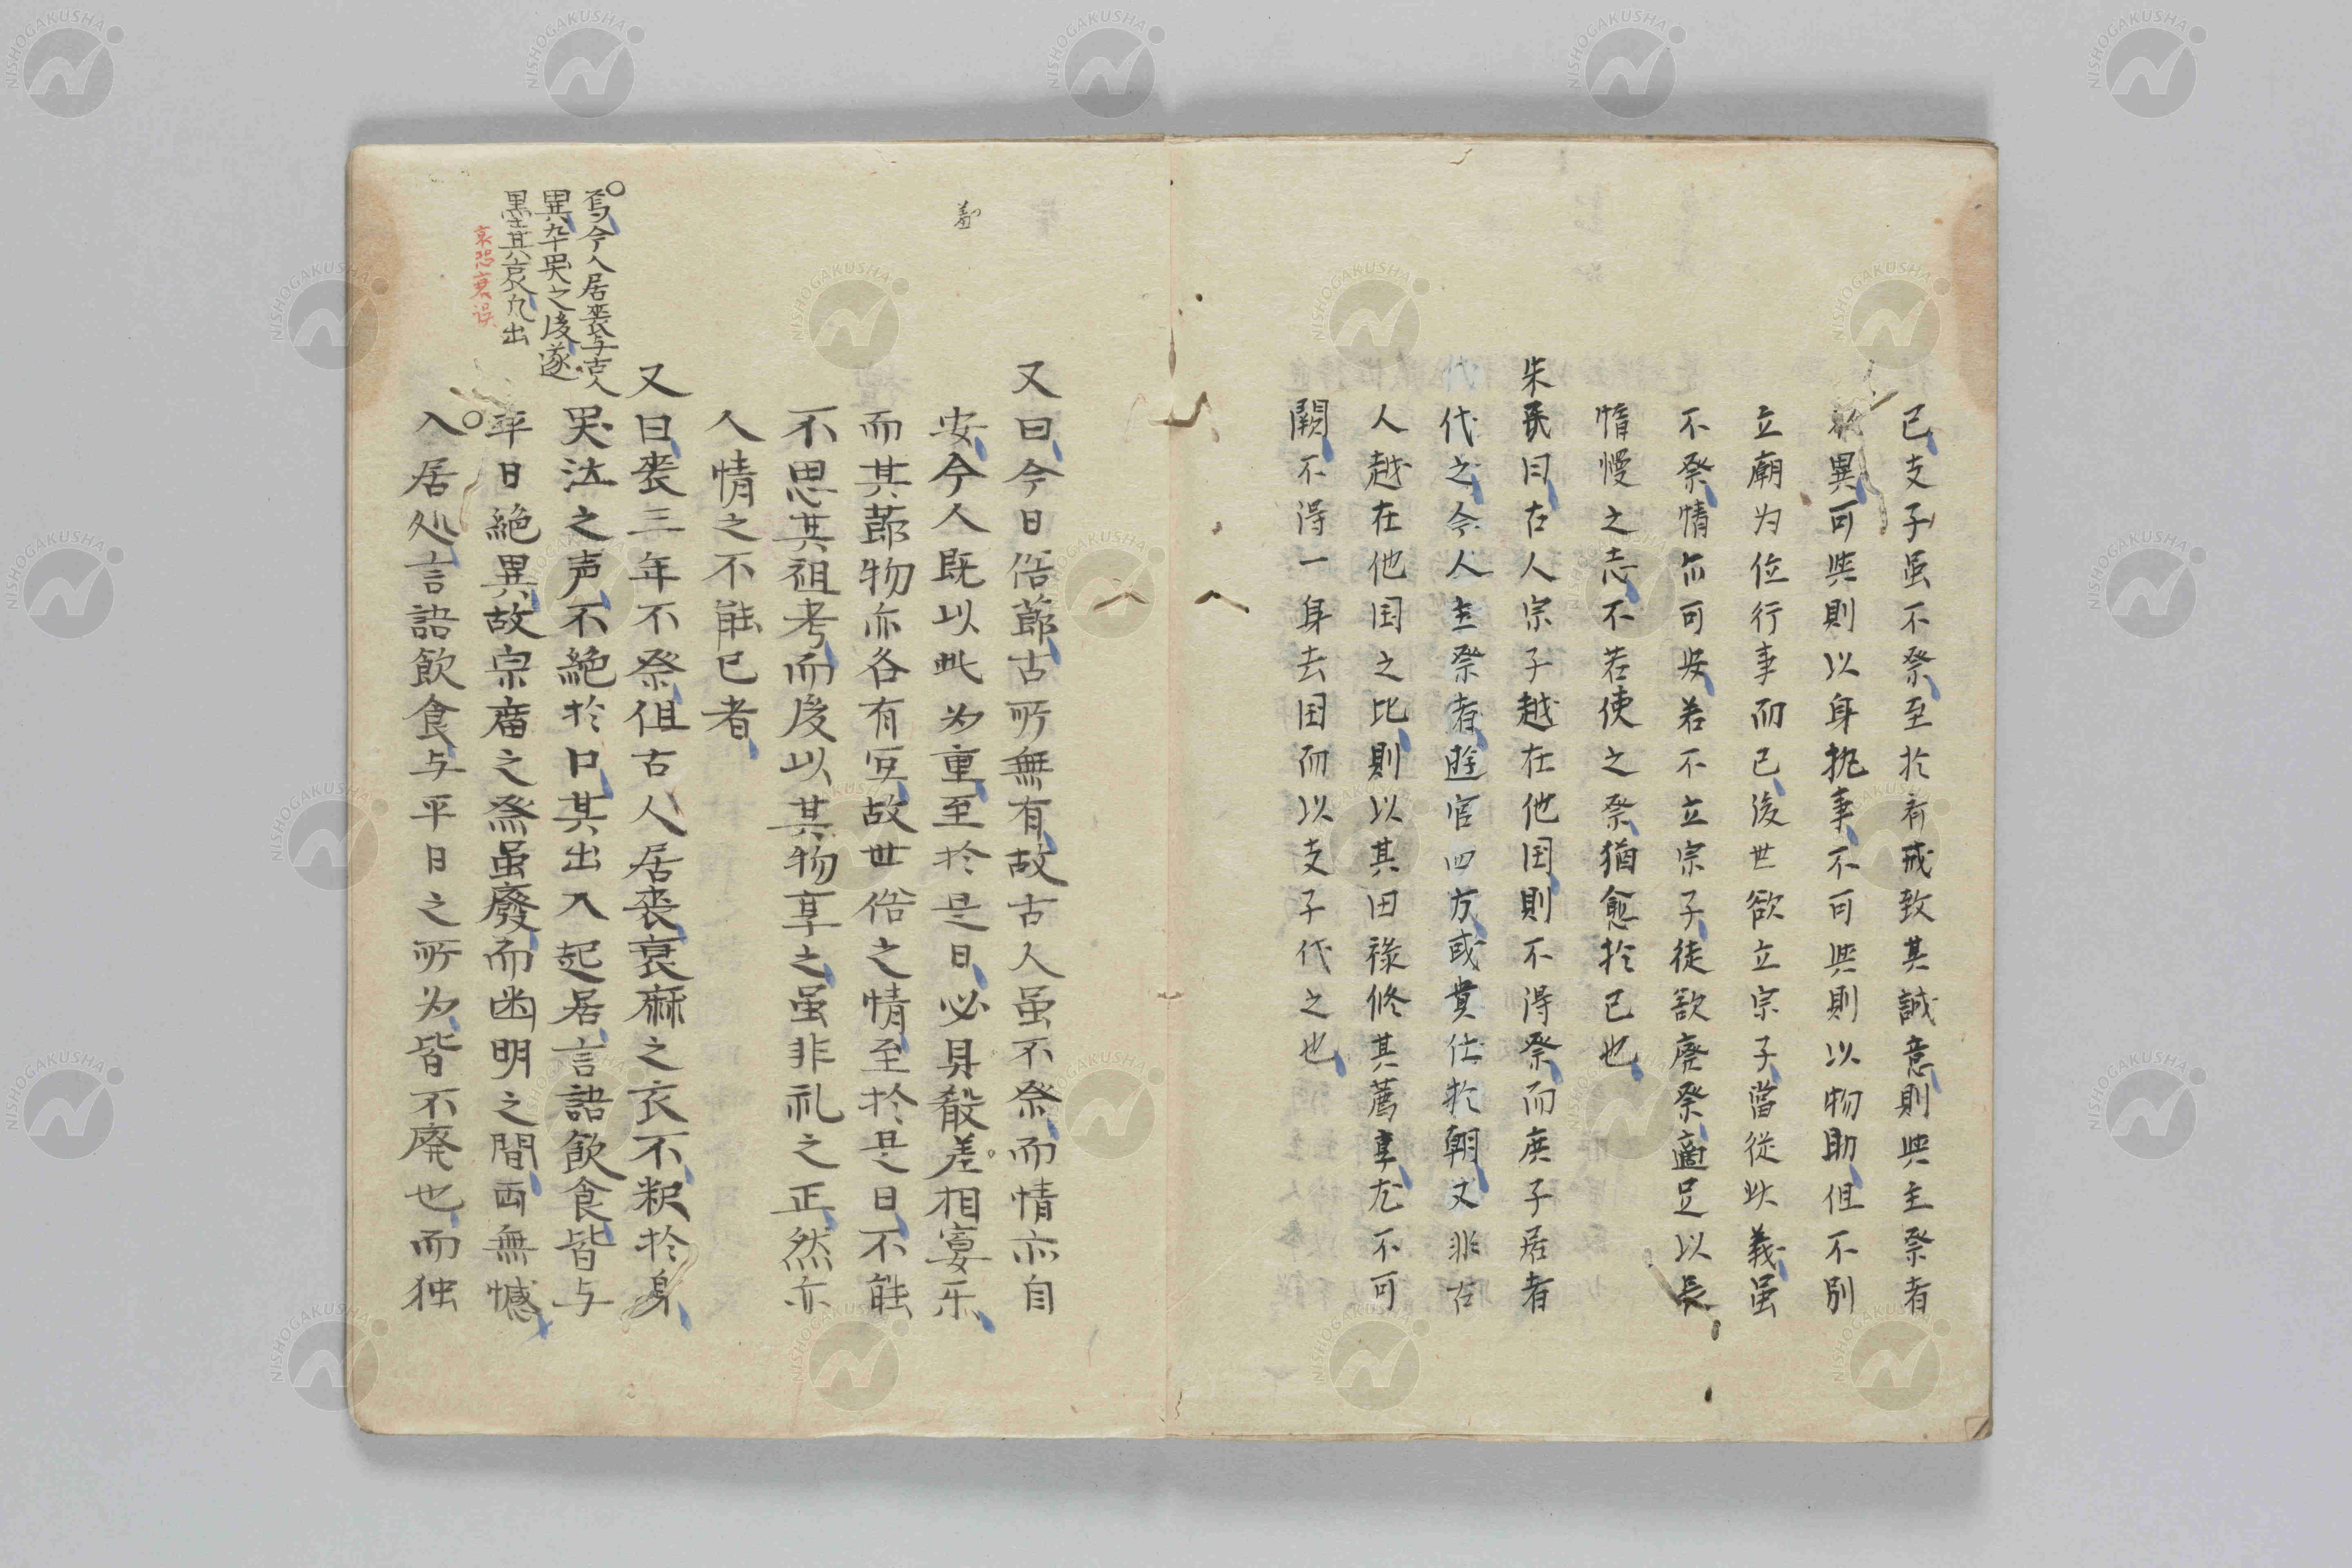 已支子虽不祭至於斉戒致其誠意則与主祭者
異可与則以身执事不可与則以物助但不別
立廟为位行事而已後世欲立宗子當從此義虽
不祭情亦可安若不立宗子徒欲廃祭適足以長
惰慢之志不若使之祭猶愈於已也
朱氏曰在人宗子越在他国則不得祭而庶子居者
代之今人主祭者遊宦四方或貴仕於朝又非古
人越在他国之比則以其田禄修其薦享尤不可
闕不得一身去国而以支子代之也
又曰今日俗節古所無有故古人虽不祭而情亦自
安今人既以此为重至於是日必具殽羞相宴乐
而其節物亦各有宜故世俗之情至於是日不能
不思其祖考而復以其物享之虽非礼之正然亦
人情之不能已者
又曰喪三年不祭但古人居喪衰麻之衣不釈於身
哭泣之声不絶於口其出入起居言語飲食皆与
平日絶異故宗廟之祭虽廢而幽明之間両無憾
入居処言語飲食与平日之所为皆不廃也而独
羞
焉今人居喪与古人
異卒哭之後遂
墨其衰凡出
NISHOGAKUSHA